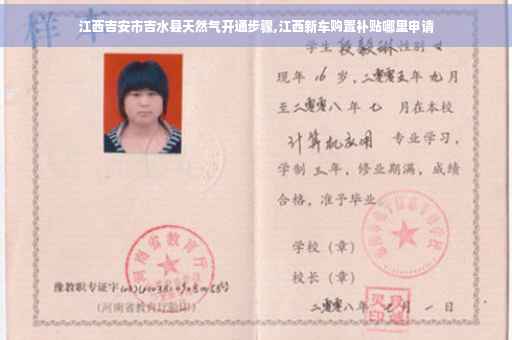 江西吉安市吉水县天然气开通步骤,江西新车购置补贴哪里申请
样本
学生段毅琳性别女
现年16岁,二零零五年九月
至二零零八年七月在本校
计算机应用 专业学习,
学制三年,修业期满,成绩
合格,准予毕业
学校(章)
校长(章)
二零零八年七月一日
河南省教育厅
豫教职专证字
(河南省教育厅验印)